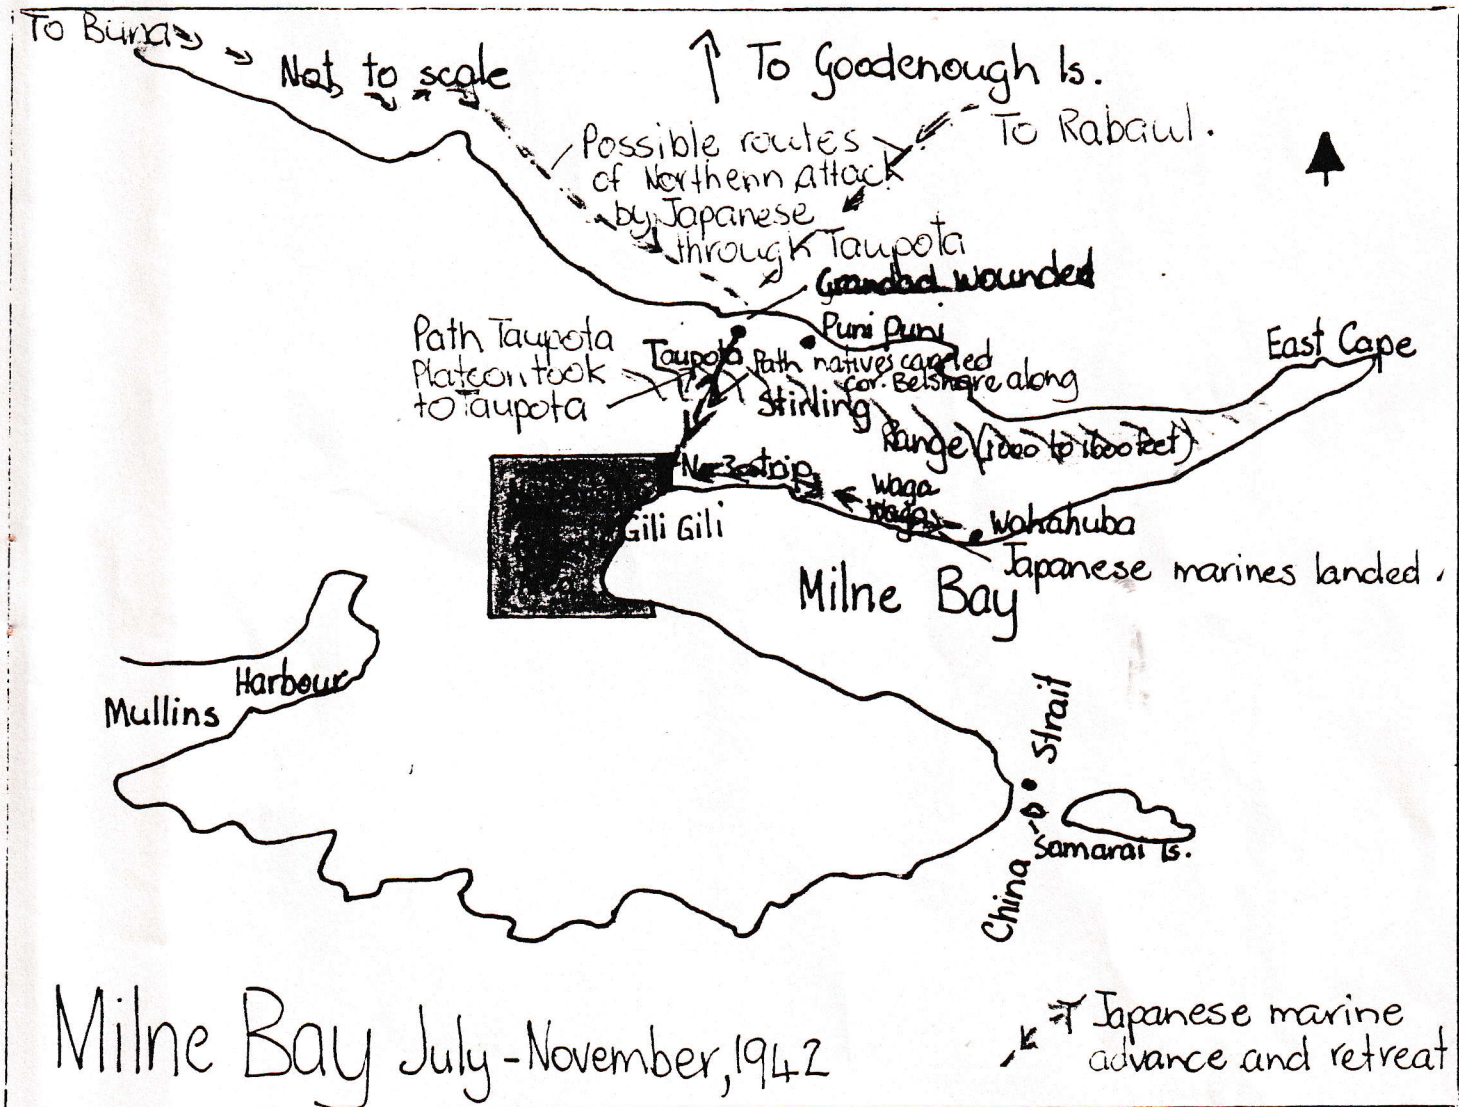 To Buna
Not to scale
To Goodenough Is.
To Rabaul.
Possible routes
of Northern attack
by Japanese
through Taupota
Grandad wounded
Path Taupota
Platoon took
to Taupota
Taupota
Puni Puni
Path natives carried
cor. Belshare along
East Cape
Stirling
Range (1000 to 1600 feet)
No 3 strip
Waga
Waga
Wahahuba
Gili Gili
Japanese marines landed.
Milne Bay
Harbour
Mullins
Strait
China
Samarai Is.
Milne Bay July - November, 1942
Japanese marine
advance and retreat